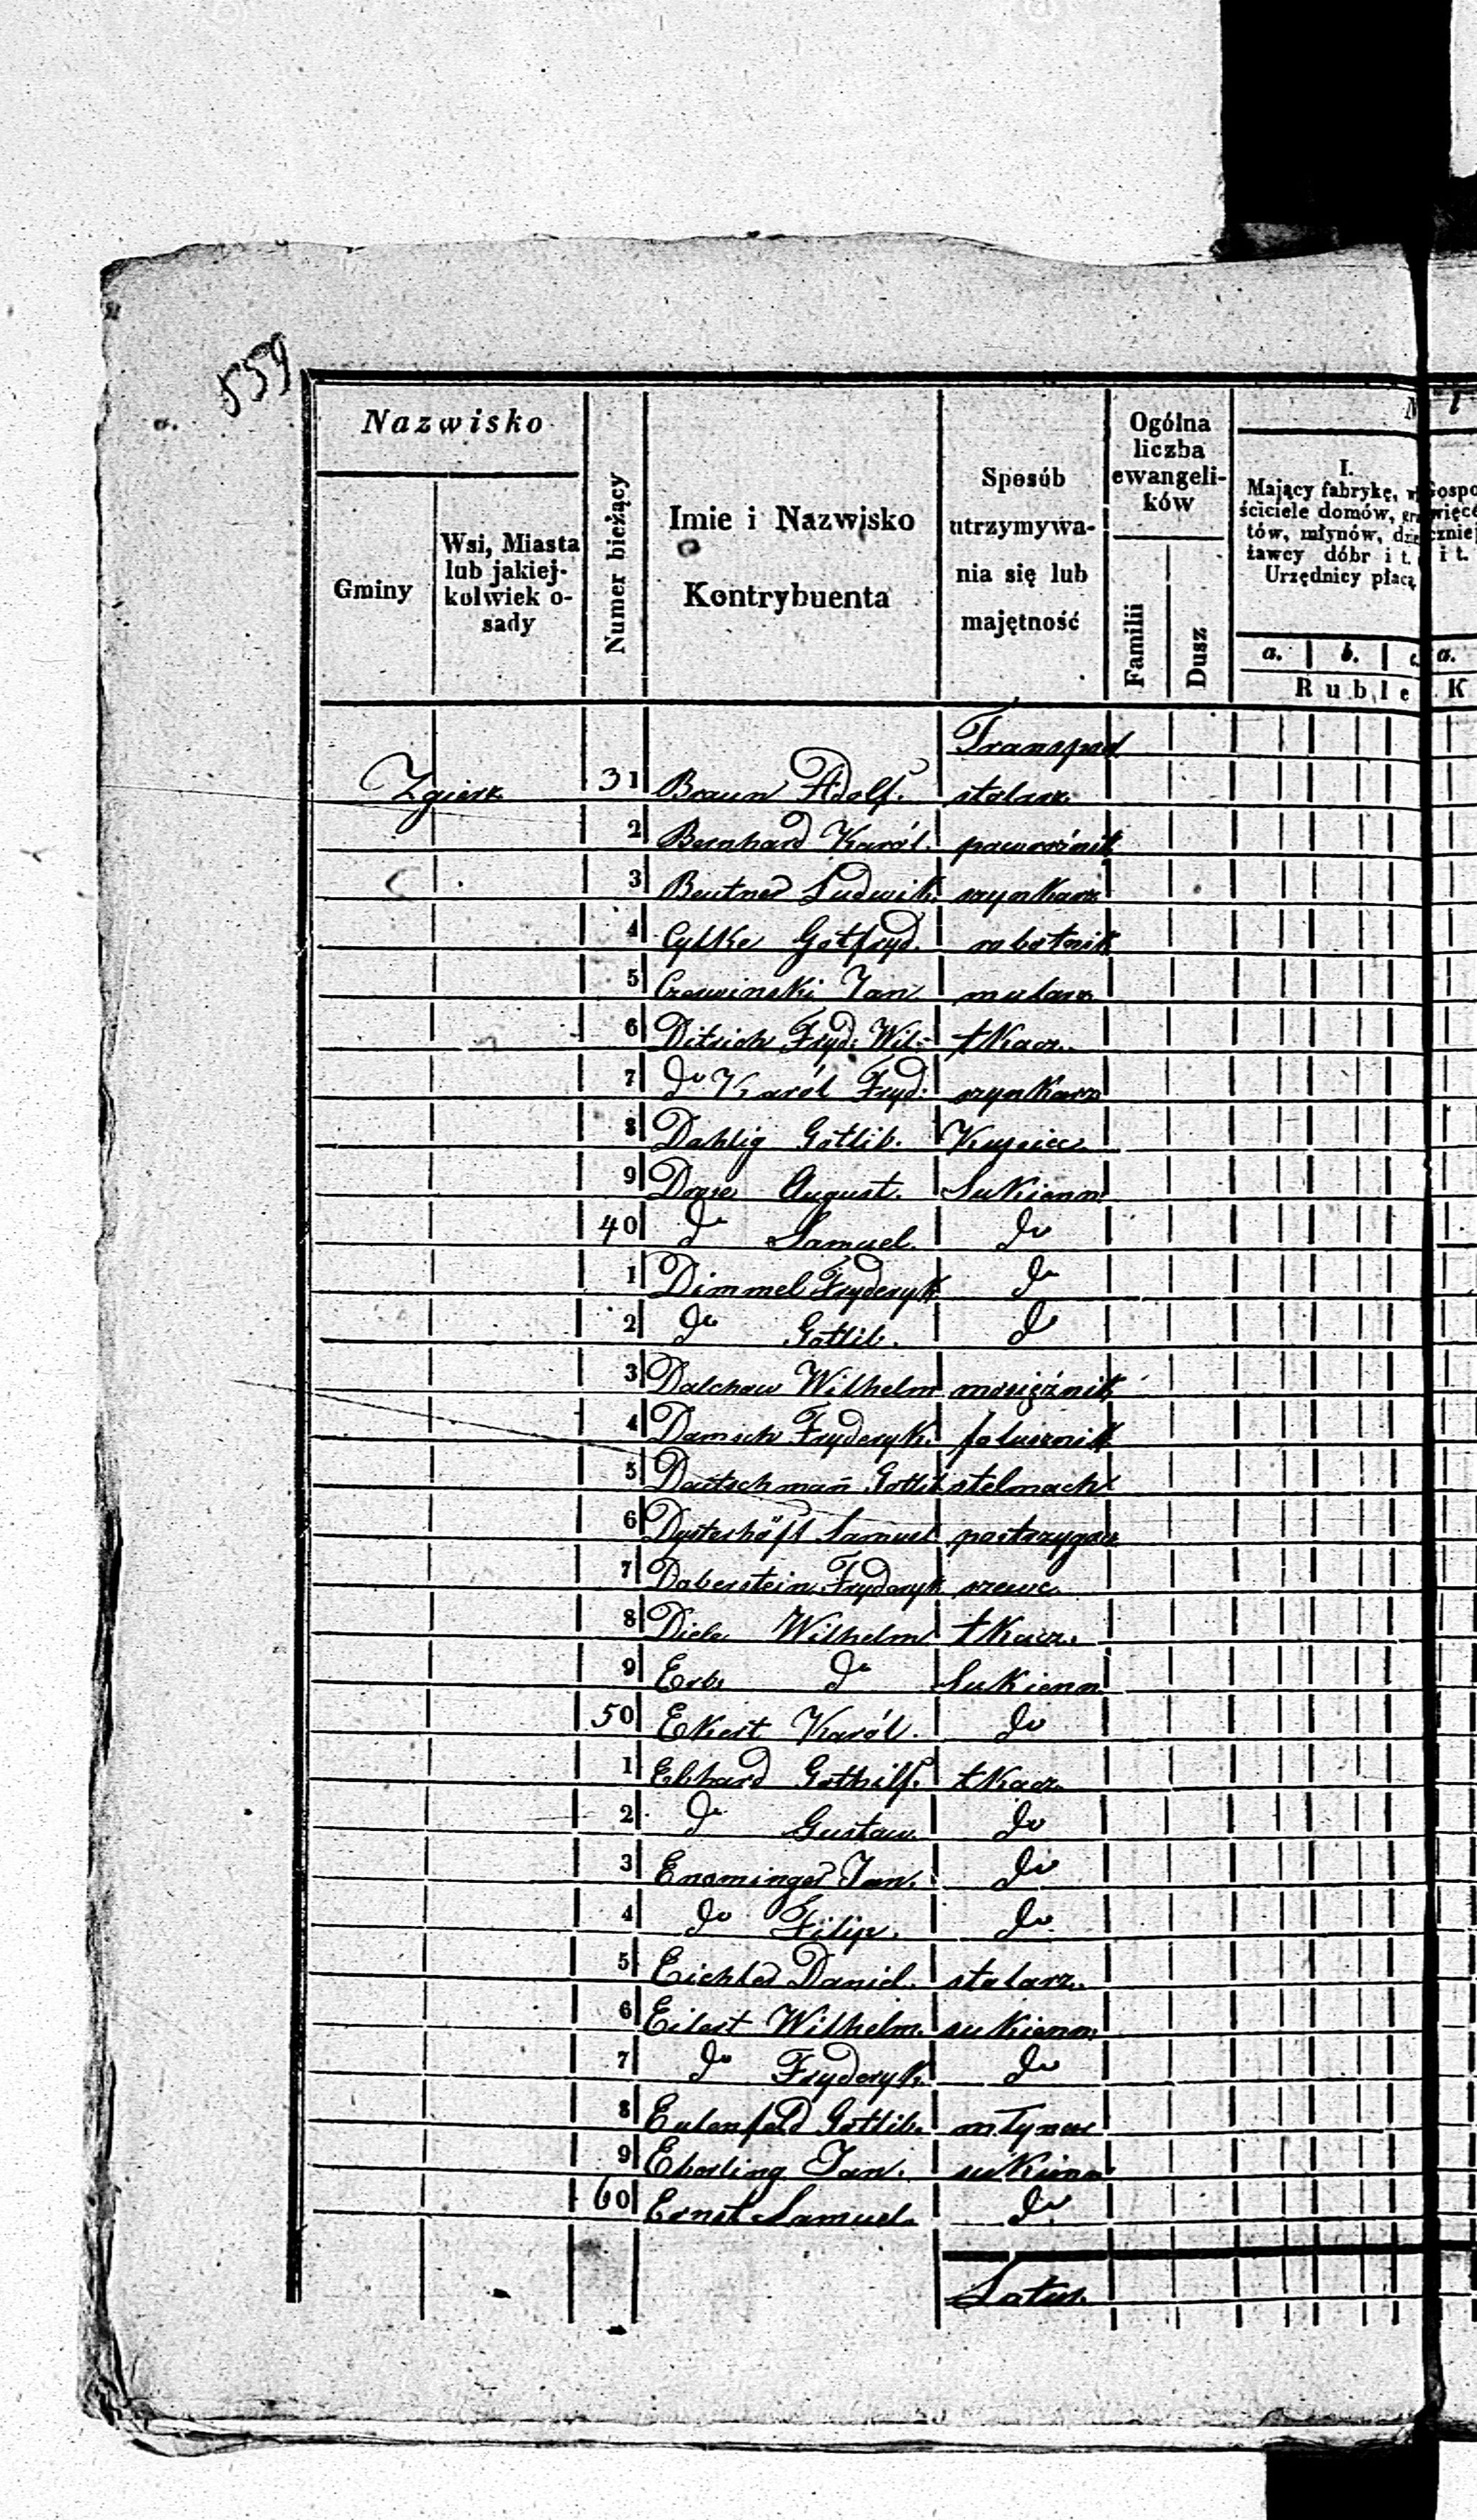 559
Nazwisko
Gminy
Wsi, Miasta
lub jakiej-
kolwiek o-
sady
Numer bieżący
Imie i Nazwisko
Kontrybuenta
Sposób
utrzymywa-
nia się lub
majętność
Ogólna
liczba
ewangeli-
ków
Familii
Dusz
I.
Mający fabrykę,
ściciele domów,
tów, młynów,
żawcy dóbr i t.
Urzędnicy płacą
a. b. c. a.
Ruble K
Transport
Zgierz 31 Braun Adolf. stolarz
2 Bernhard Karól. powroźnik
3 Beutner Ludwik. szynkarz
4 Cylke Gotfryd. robotnik
5 Czerwinski Jan mularz
6 Ditrich Fryd: Wil: tkacz.
7 do Karól Fryd: szynkarz
8 Dahlig Gotlib. Kupiec
9 Drose August. Sukienn:
40 do Samuel. do
1 Dimmel Fryderyk do
2 do Gotlib. do
3 Dalchau Wilhelm mosiężnik
4 Damsch Fryderyk. folusznik
5 Deutschman̄ Gotlib stelmach
6 Dysterhöft Samuel postrzygacz
7 Daberstein Fryderyk szewc
8 Diele Wilhelm tkacz.
9 Erbe do Sukienn
50 Ekert Karól. do
1 Ebhard Gothilf. tkacz
2 do Gustaw. do
3 Ensminger Jan. do
4 do Filip. do
5 Eichler Daniel. stolarz.
6 Eilert Wilhelm. sukienn:
7 do Fryderyk. do
8 Eulenfeld Gotlib. młynar
9 Eberling Jan. sukienn
60 Ernst Samuel. do
Latus.